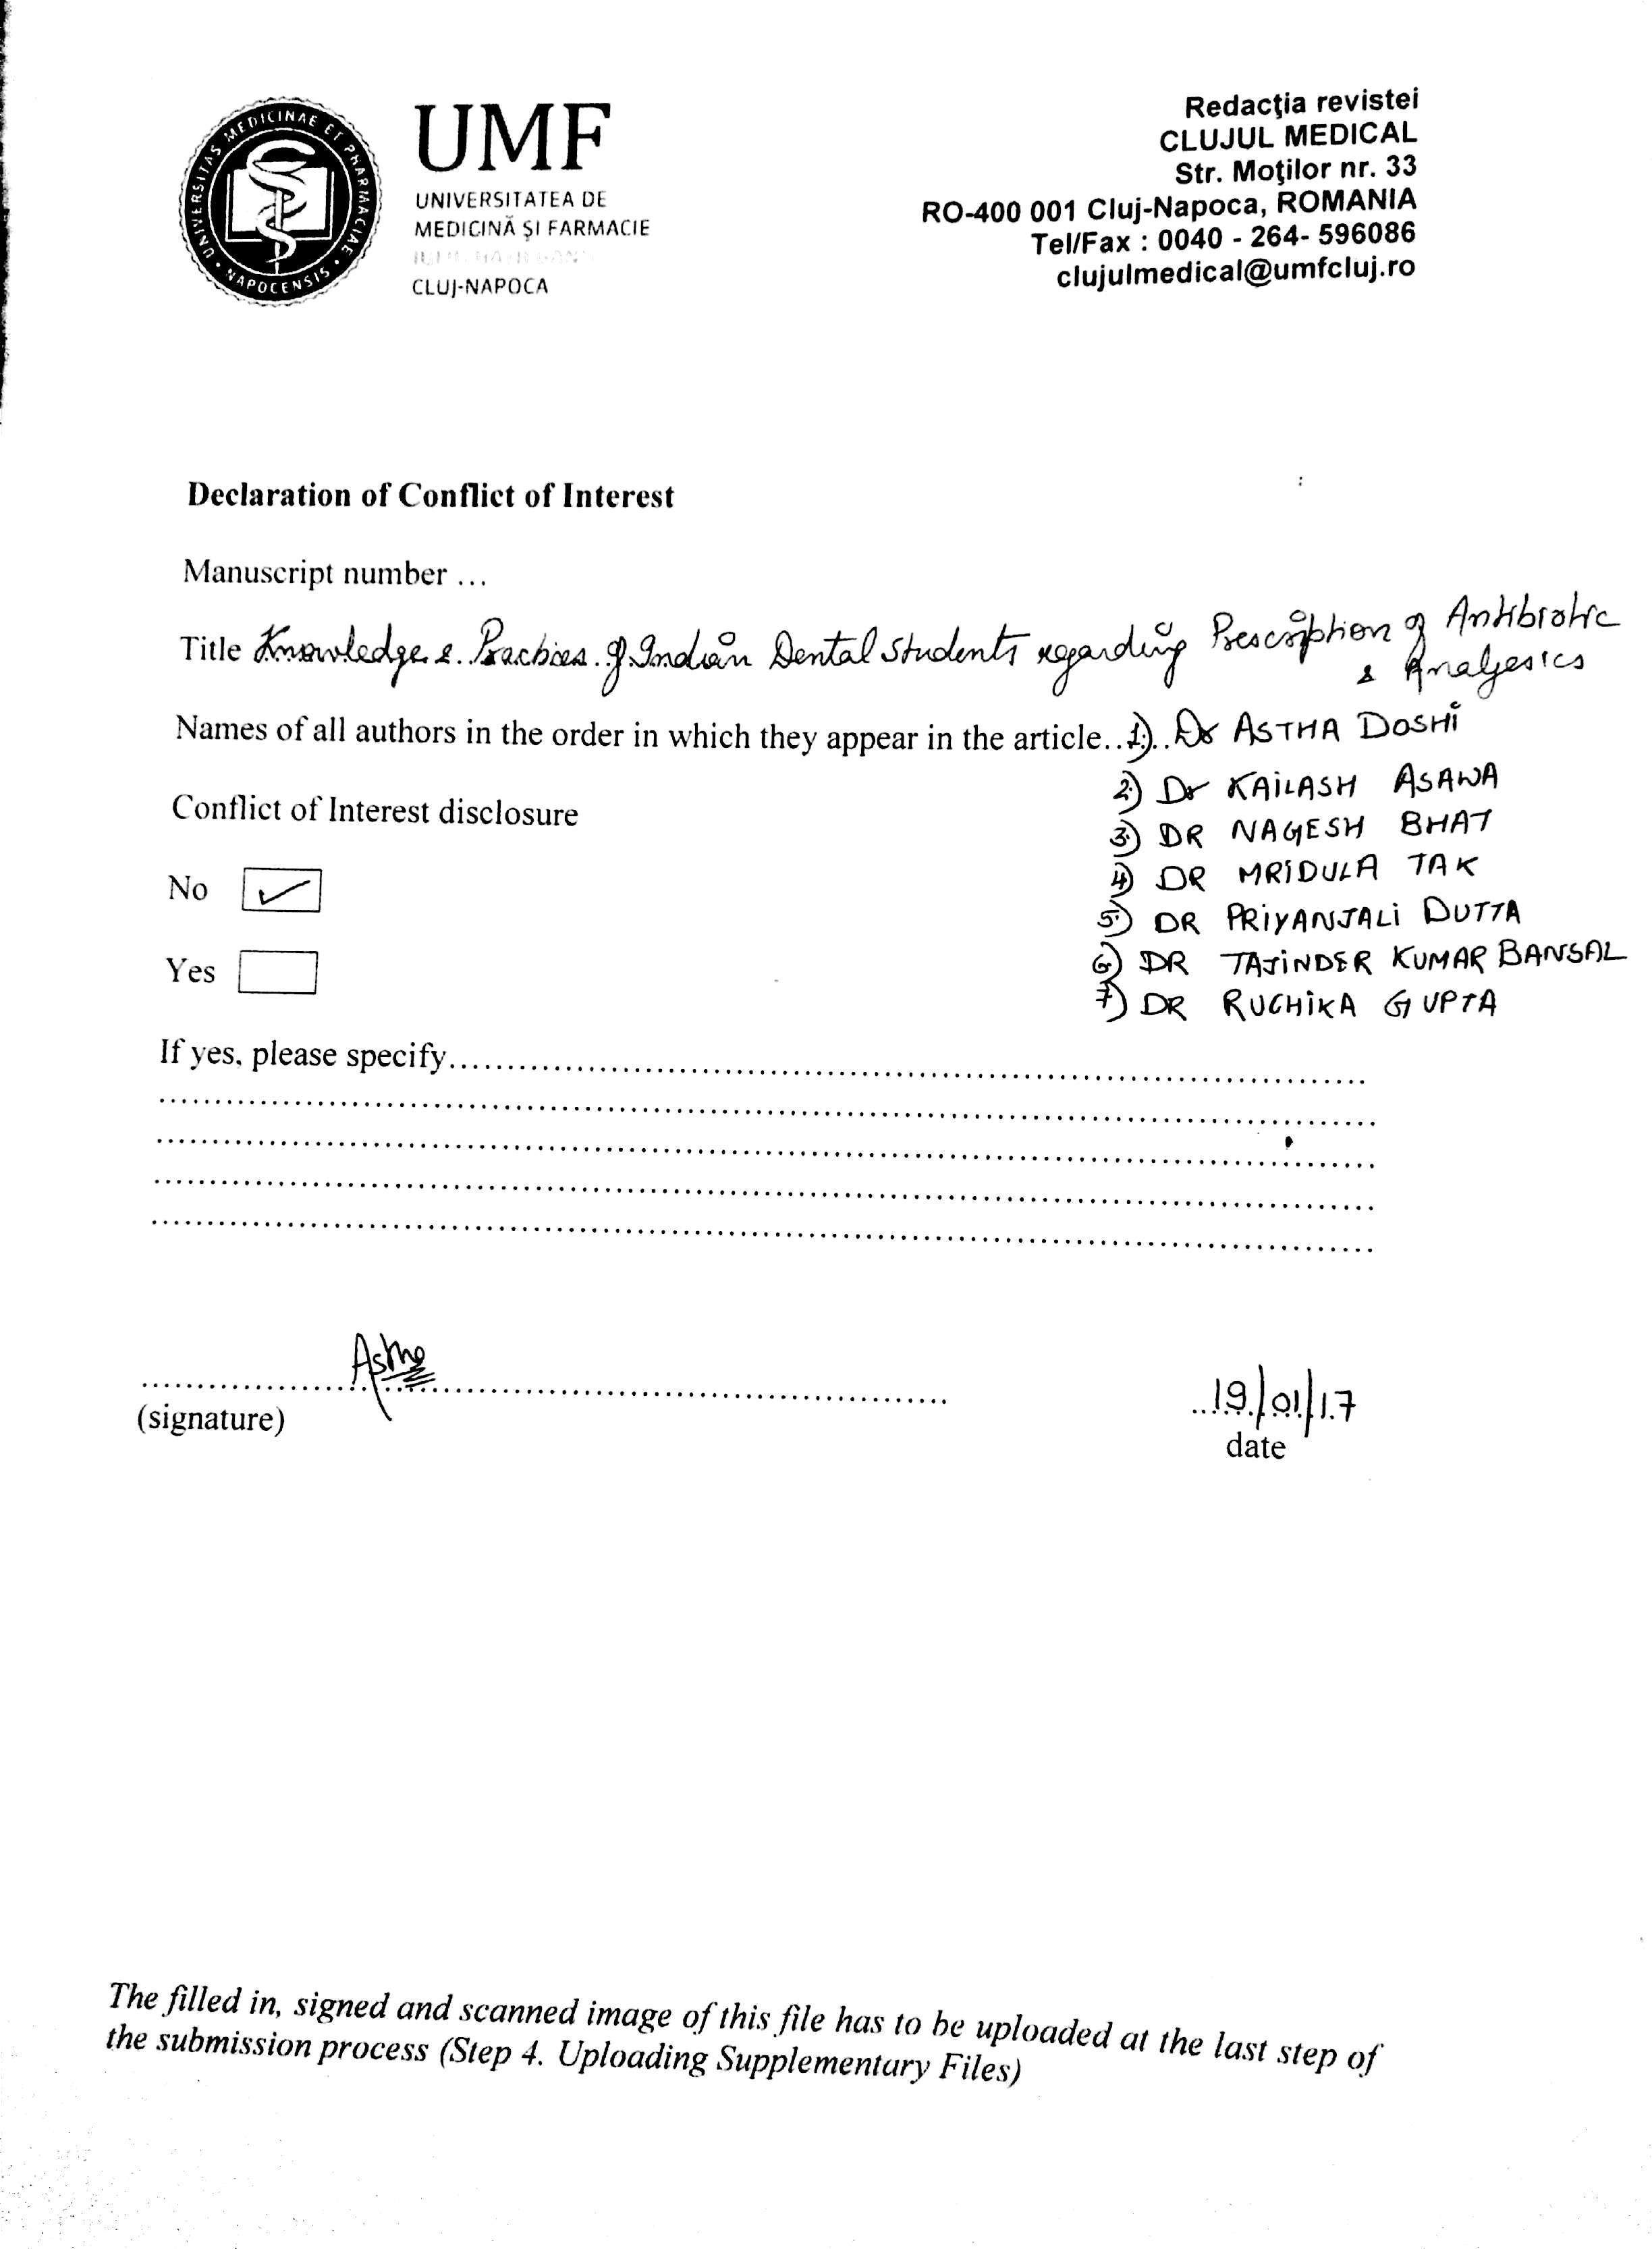 UNIVERSITAS MEDICINAE ET PHARMACIAE
NAPOCENSIS
UMF
UNIVERSITATEA DE
MEDICINĂ ŞI FARMACIE
CLUJ-NAPOCA
Redacţia revistei
CLUJUL MEDICAL
Str. Moţilor nr. 33
RO-400 001 Cluj-Napoca, ROMANIA
Tel/Fax : 0040 - 264- 596086
clujulmedical@umfcluj.ro
Declaration of Conflict of Interest
Manuscript number ...
Title Knowledge & Practices of Indian Dental Students regarding Prescription of Antibiotic
& Analgesics
Names of all authors in the order in which they appear in the article..1)..Dr ASTHA DOSHi
2) Dr KAiLASH ASAWA
3) DR NAGESH BHAT
4) DR MRiDULA TAK
5) DR PRiYANJALi DUTTA
6) DR TAJiNDER KUMAR BANSAL
7) DR RUCHiKA GUPTA
Conflict of Interest disclosure
No ✓
Yes
If yes, please specify..........
Astha
(signature)
19/01/17
date
The filled in, signed and scanned image of this file has to be uploaded at the last step of
the submission process (Step 4. Uploading Supplementary Files)